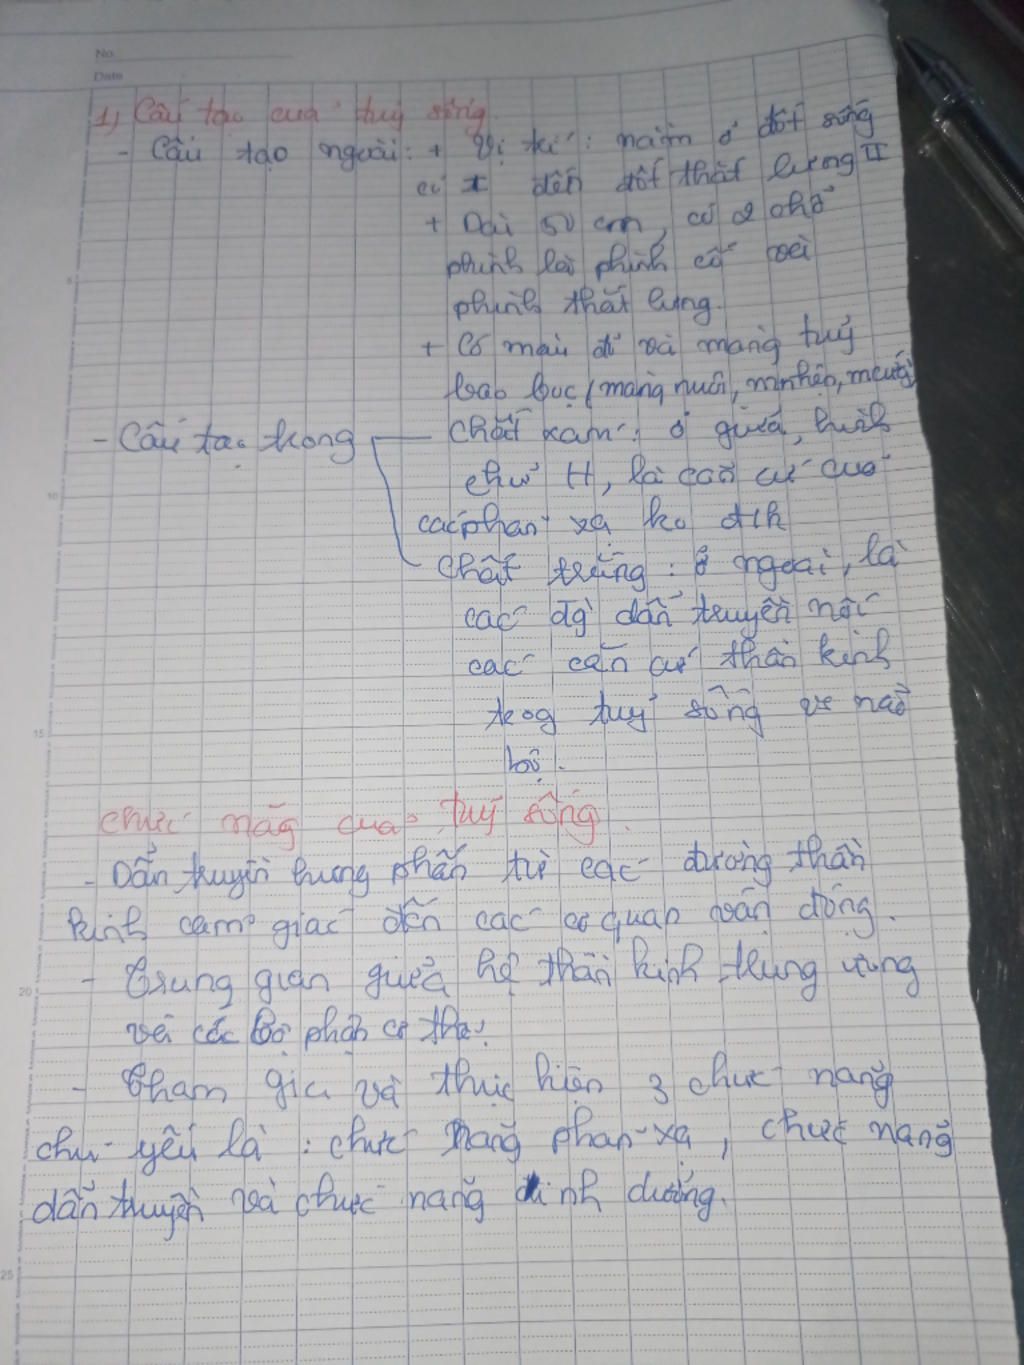 No.
Date
1) Cấu tạo của tuỷ sống.
- Cấu tạo ngoài: + Vị trí: nằm ở đốt sống
cổ I đến đốt thắt lưng II
+ Dài 50 cm, có 2 chỗ
phình là phình cổ và
phình thắt lưng.
+ Có màu và màng tuỷ
5
bao bọc (màng nuôi, m.nhện, m.cứng)
- Cấu tạo trong
chất xám: ở giữa, hình
chữ H, là căn cứ của
10
các phản xạ ko đk
chất trắng: ở ngoài, là
các đg dẫn truyền nối
các căn cứ thần kinh
trog tuỷ sống và não
15
bộ.
chức năng của tuỷ sống.
- Dẫn truyền hưng phấn từ các đường thần
kinh cảm giác đến các cơ quan vận động.
- Trung gian giữa hệ thần kinh trung ương
20
với các bộ phận cơ thể.
- Tham gia và thực hiện 3 chức năng
chủ yếu là: chức năng phản xạ, chức năng
dẫn truyền và chức năng dinh dưỡng.
25